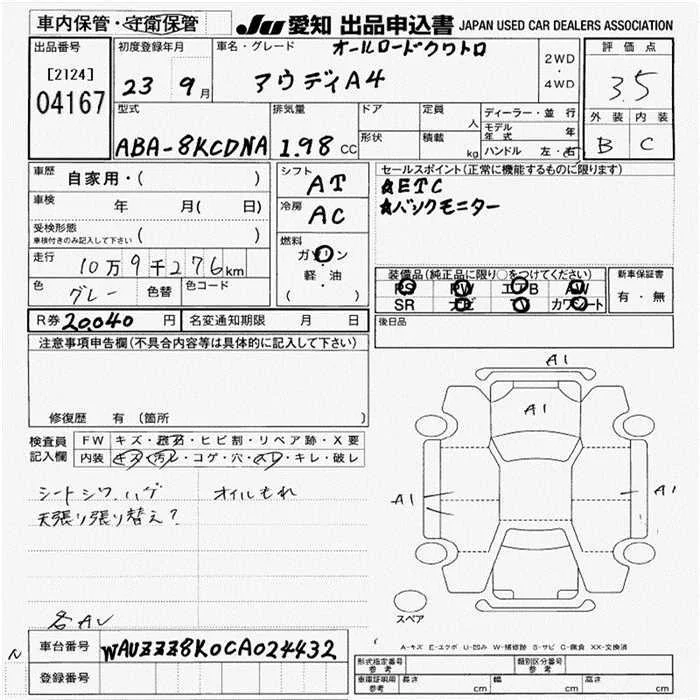 車内保管・守衛保管
JU 愛知 出品申込書 JAPAN USED CAR DEALERS ASSOCIATION
出品番号
[2124]
04167
初度登録年月
23 9月
車名・グレード
オールロードクワトロ
アウディA4
2WD
・
4WD
評価点
3.5
外装 内装
B C
型式
ABA-8KCDNA
排気量
1.98 CC
ドア
形状
定員
人
積載
kg
ディーラー・並行
モデル年式 年
ハンドル 左・右
車歴
自家用・( )
車検 年 月( 日)
受検形態
車検付きのみ記入して下さい ( )
走行
10万9千276km
色 グレー 色替 色コード
シフト
AT
冷房
AC
燃料
ガソリン
・
軽・油
( )
セールスポイント(正常に機能するものに限ります)
☆ETC
☆バックモニター
装備品(純正品に限り○をつけてください)
PS PW エアB AW
SR ナビ TV カワシート
新車保証書
有・無
R券 20,040 円 名変通知期限 月 日
後日品
注意事項申告欄(不具合内容等は具体的に記入して下さい)
修復歴 有(箇所 )
検査員
記入欄
FW キズ・飛石・ヒビ割・リペア跡・X要
内装 キズ・汚レ・コゲ・穴・スレ・キレ・破レ
シートシワ、ハゲ オイルもれ
天張り張り替え?
A1
A1
A1
A1
スペア
A-キズ E-エクボ U-凹み W-補修跡 S-サビ C-腐食 XX-交換済
車台番号 WAUZZZ8K0CA024432
登録番号
形式指定番号
参考
類別区分番号
参考
車庫証明用
参考
長さ cm 幅 cm 高さ cm